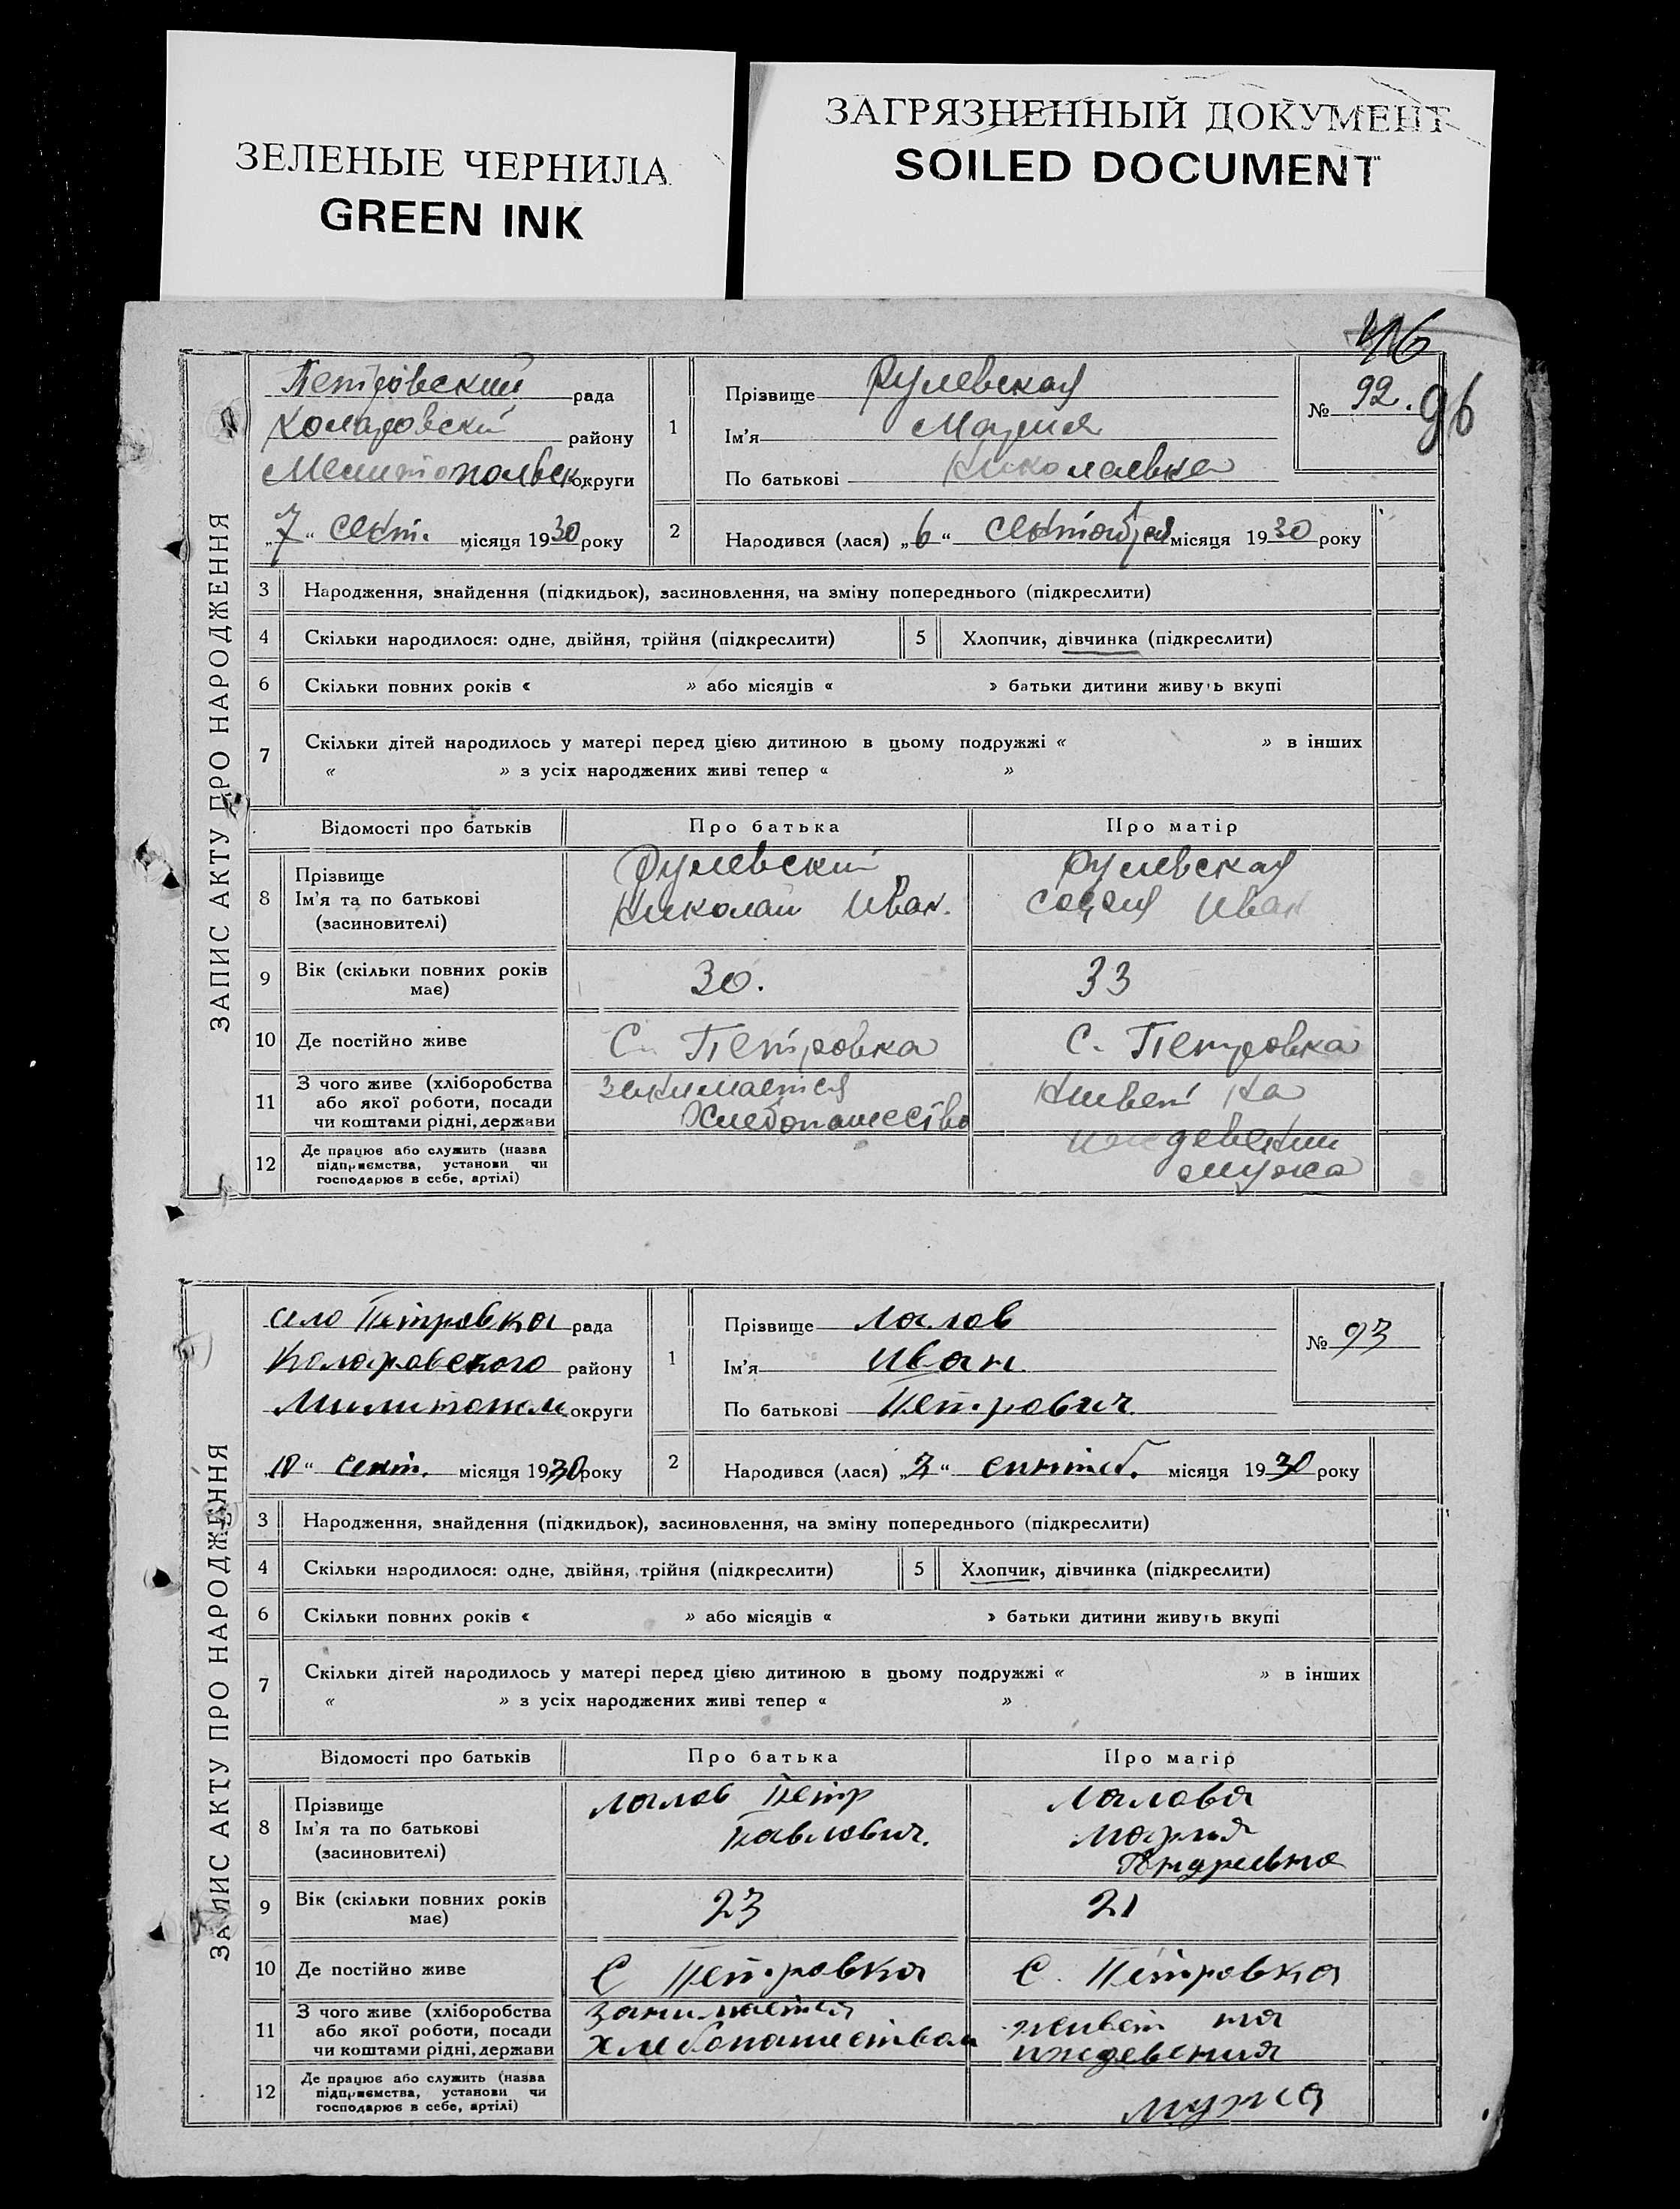 ЗЕЛЕНЫЕ ЧЕРНИЛА
GREEN INK
ЗАГРЯЗНЕННЫЙ ДОКУМЕНТ
SOILED DOCUMENT
ЗАПИС АКТУ ПРО НАРОДЖЕННЯ
Петровский рада
Коларовский району
округи
„7“ сент. місяця 1930 року
1
Прізвище
Ім'я Мария
По батькові Николаевна
№ 92.
96
2
Народився (лася) „6“ сентября місяця 1930 року
3 Народження, знайдення (підкидьок), засиновлення, на зміну попереднього (підкреслити)
4 Скільки народилося: одне, двійня, трійня (підкреслити) 5 Хлопчик, дівчинка (підкреслити)
6 Скільки повних років « » або місяців « » батьки дитини живуть вкупі
7 Скільки дітей народилось у матері перед цією дитиною в цьому подружжі « » в інших
« » з усіх народжених живі тепер « »
Відомості про батьків Про батька Про матір
8 Прізвище
Ім'я та по батькові
(засиновителі)
Николай Иван.
София Иван
9 Вік (скільки повних років має) 30. 33
10 Де постійно живе С. Петровка С. Петровка
11 З чого живе (хліборобства
або якої роботи, посади
чи коштами рідні, держави
занимается
Хлебопашество
живет на
иждевении
мужа
12 Де працює або служить (назва
підприємства, установи чи
господарює в себе, артілі)
ЗАПИС АКТУ ПРО НАРОДЖЕННЯ
село Петровка рада
Коларовского району
Милитопол округи
„10“ сент. місяця 1930 року
1
Прізвище Лалов
Ім'я Иван
По батькові Петрович
№ 93
2
Народився (лася) „3“ сентяб. місяця 1930 року
3 Народження, знайдення (підкидьок), засиновлення, на зміну попереднього (підкреслити)
4 Скільки народилося: одне, двійня, трійня (підкреслити) 5 Хлопчик, дівчинка (підкреслити)
6 Скільки повних років « » або місяців « » батьки дитини живуть вкупі
7 Скільки дітей народилось у матері перед цією дитиною в цьому подружжі « » в інших
« » з усіх народжених живі тепер « »
Відомості про батьків Про батька Про матір
8 Прізвище
Ім'я та по батькові
(засиновителі)
Лалов Петр
Павлович.
Лалова
Мария
Андреевна
9 Вік (скільки повних років має) 23 21
10 Де постійно живе С Петровка С. Петровка
11 З чого живе (хліборобства
або якої роботи, посади
чи коштами рідні, держави
занимается
хлебопашеством
живет на
иждевения
мужа
12 Де працює або служить (назва
підприємства, установи чи
господарює в себе, артілі)